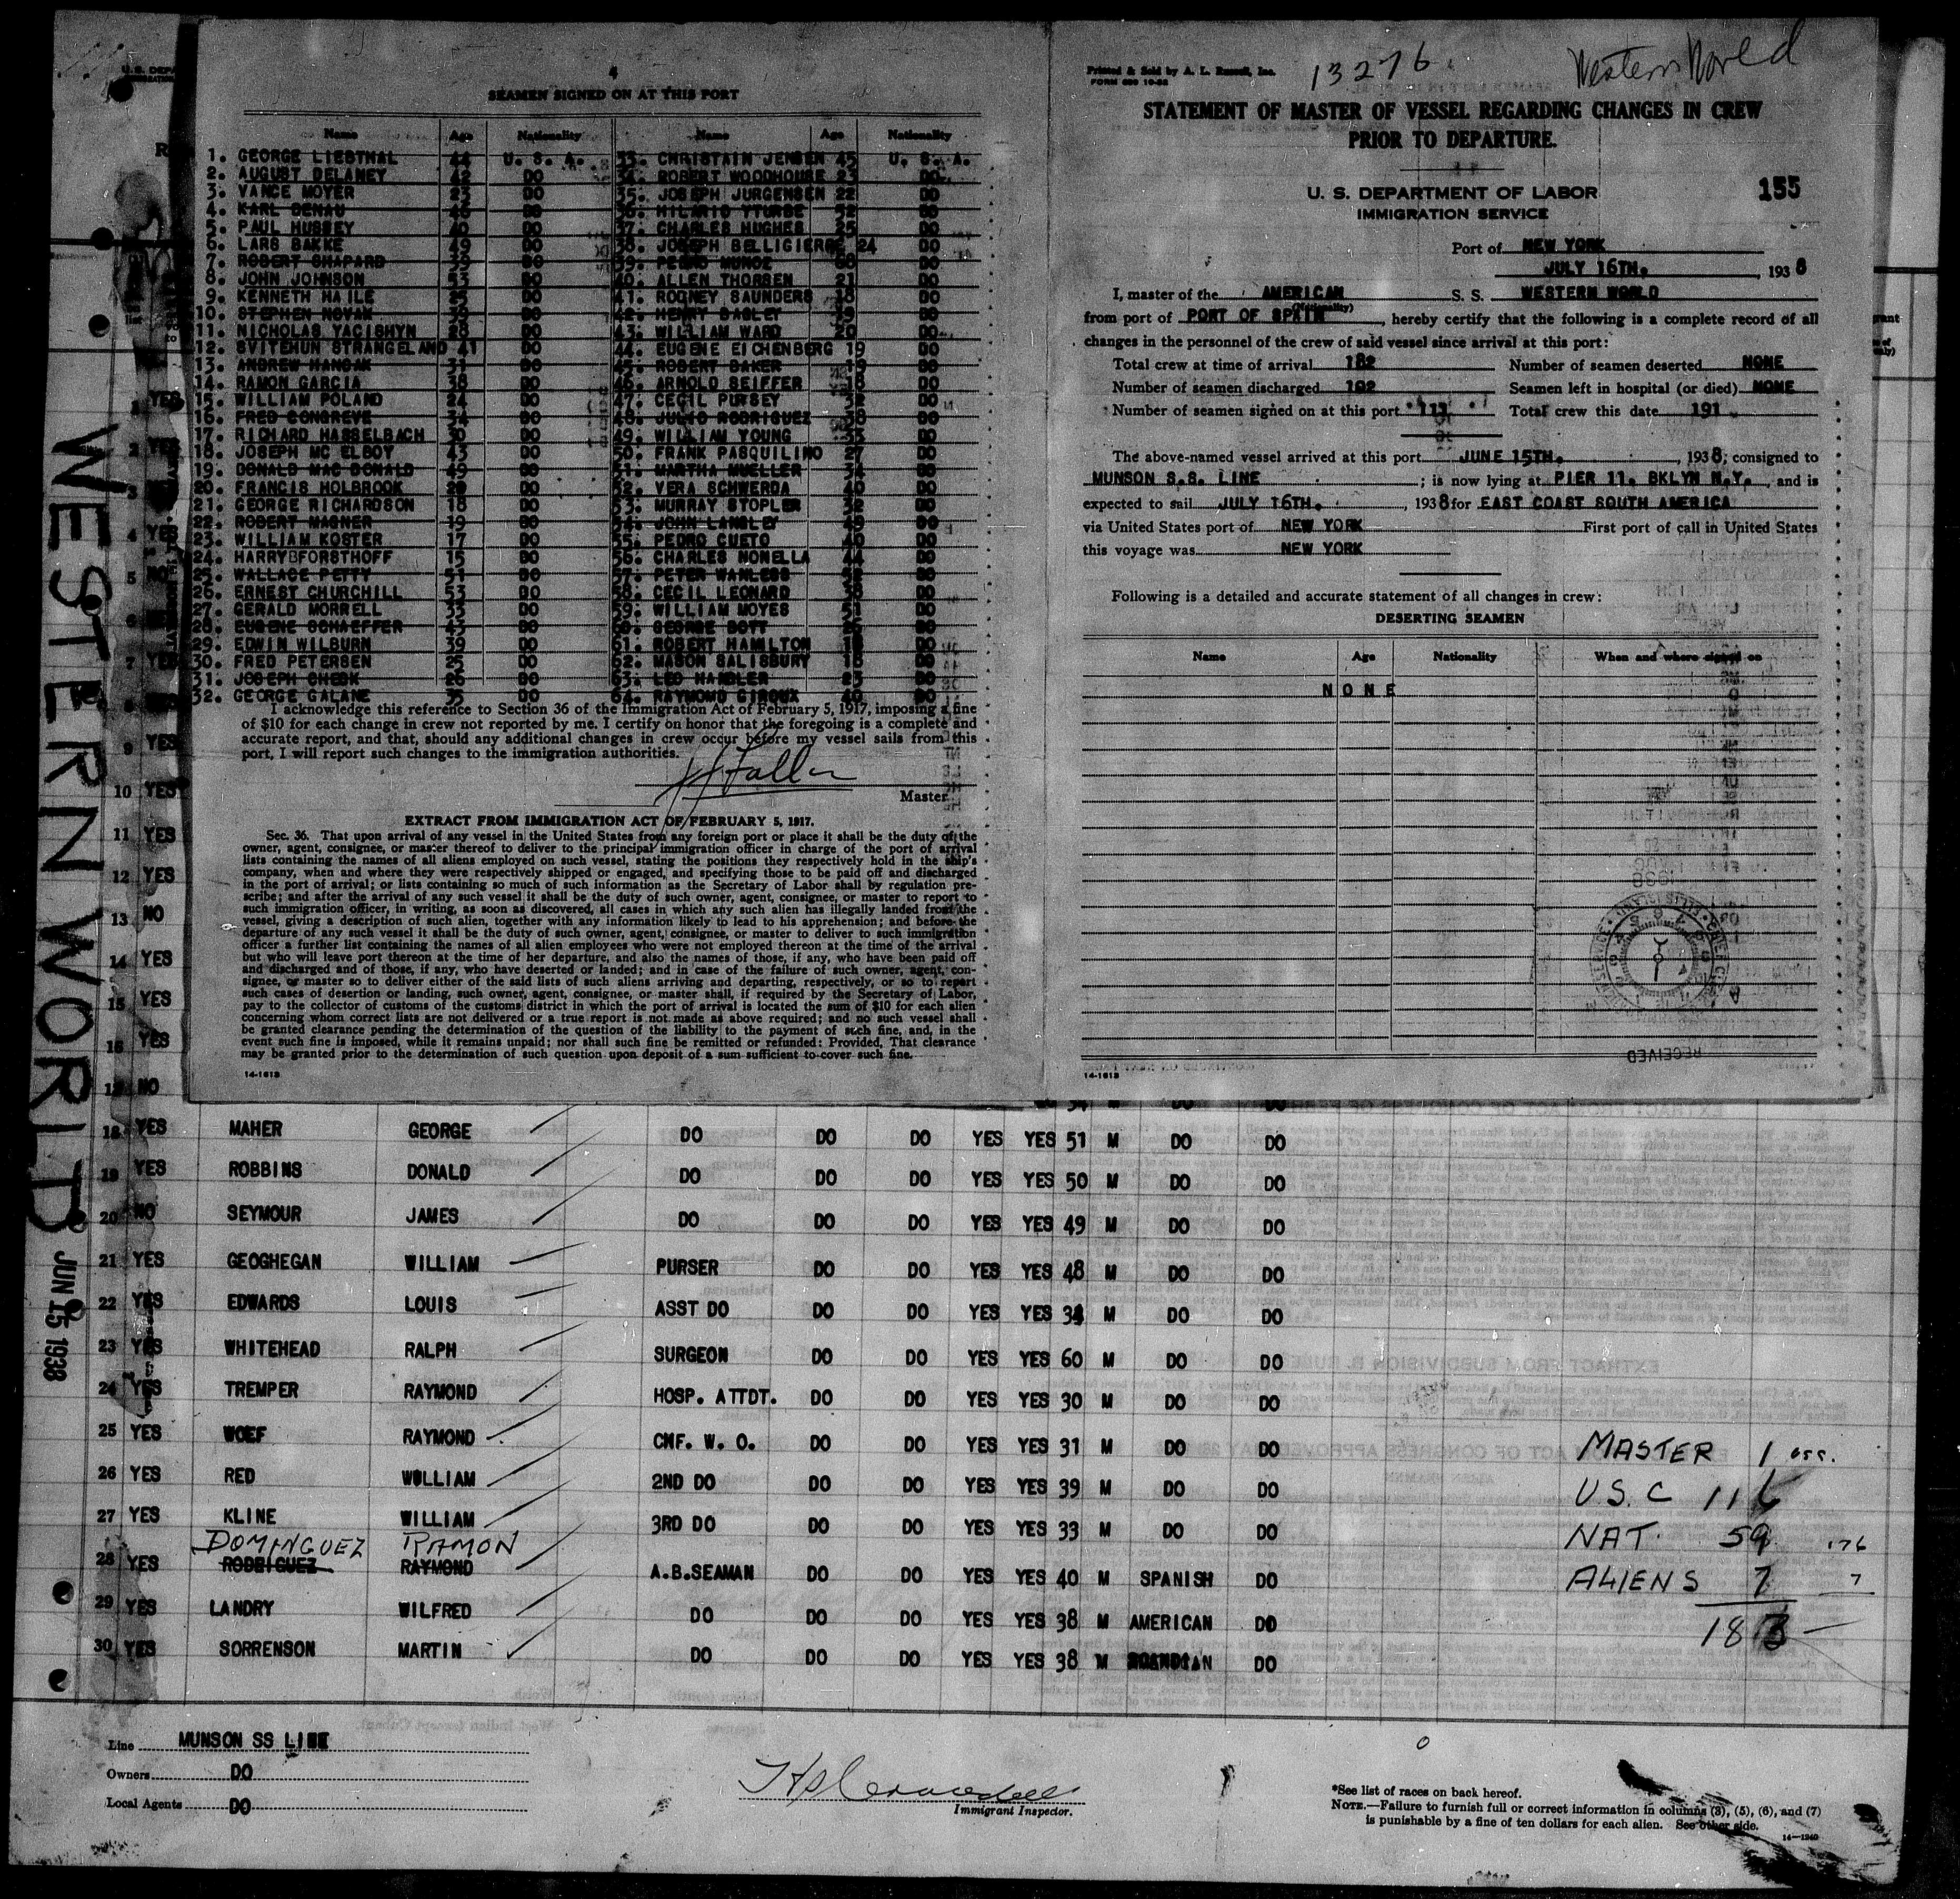 4
SEAMEN SIGNED ON AT THIS PORT
Name Age Nationality Name Age Nationality
1. GEORGE LIESTHAL 44 U. S. A. 33. CHRISTAIN JENSEN 45 U. S. A.
2. AUGUST DELANEY 42 DO 34. ROBERT WOODHOUSE 23 DO
3. VANCE MOYER 23 DO 35. JOSEPH JURGENSEN 22 DO
4. KARL DO 36. HILARIO DO
5. PAUL HUSSEY 40 DO 37. CHARLES HUGHES 25 DO
6. LARS BAKKE 49 DO 38. JOSEPH 24 DO
7. ROBERT SHAPARD 39 DO 39. PEDRO MUNOZ DO
8. JOHN JOHNSON 53 DO 40. ALLEN THORSEN 21 DO
9. KENNETH HAILE DO 41. RODNEY SAUNDERS 18 DO
10. STEPHEN NOVAK 39 DO 42. HENRY 19 DO
11. NICHOLAS YACISHYN 28 DO 43. WILLIAM WARD 20 DO
12. SVITEHUN STRANGELAND 41 DO 44. EUGENE EICHENBERG 19 DO
13. ANDREW 31 DO 45. ROBERT BAKER DO
14. RAMON GARCIA 38 DO 46. ARNOLD SEIFFER 18 DO
15. WILLIAM POLAND 24 DO 47. CECIL PURSEY DO
16. FRED CONGREVE 34 DO 48. JULIO RODRIGUEZ DO
17. RICHARD HASSELBACH 30 DO 49. WILLIAM YOUNG DO
18. JOSEPH MC ELBOY 43 DO 50. FRANK PASQUILINO 27 DO
19. DONALD MAC DONALD 49 DO 51. MARTHA MUELLER 34 DO
20. FRANCIS HOLBROOK DO 52. VERA SCHWERDA 40 DO
21. GEORGE RICHARDSON 18 DO 53. MURRAY STOPLER 32 DO
22. ROBERT WAGNER 19 DO 54. JOHN LANGLEY DO
23. WILLIAM KOSTER 17 DO 55. PEDRO CUETO 40 DO
24. HARRYBFORSTHOFF 15 DO 56. CHARLES NONELLA 44 DO
25. WALLACE PETTY 51 DO 57. PETER WANLESS DO
26. ERNEST CHURCHILL 53 DO 58. CECIL LEONARD 38 DO
27. GERALD MORRELL 33 DO 59. WILLIAM MOYES 51 DO
28. EUGENE SCHAEFFER 43 DO 60. GEORGE DO
29. EDWIN WILBURN 39 DO 61. ROBERT HAMILTON DO
30. FRED PETERSEN 25 DO 62. MASON SALISBURY 18 DO
31. JOSEPH 26 DO 63. LEO 23 DO
32. GEORGE GALANE 35 DO 64. RAYMOND GIROUX 40 DO
I acknowledge this reference to Section 36 of the Immigration Act of February 5, 1917, imposing a fine
of $10 for each change in crew not reported by me. I certify on honor that the foregoing is a complete and
accurate report, and that, should any additional changes in crew occur before my vessel sails from this
port, I will report such changes to the immigration authorities.
Master
EXTRACT FROM IMMIGRATION ACT OF FEBRUARY 5, 1917.
Sec. 36. That upon arrival of any vessel in the United States from any foreign port or place it shall be the duty of the
owner, agent, consignee, or master thereof to deliver to the principal immigration officer in charge of the port of arrival
lists containing the names of all aliens employed on such vessel, stating the positions they respectively hold in the ship's
company, when and where they were respectively shipped or engaged, and specifying those to be paid off and discharged
in the port of arrival; or lists containing so much of such information as the Secretary of Labor shall by regulation pre-
scribe; and after the arrival of any such vessel it shall be the duty of such owner, agent, consignee, or master to report to
such immigration officer, in writing, as soon as discovered, all cases in which any such alien has illegally landed from the
vessel, giving a description of such alien, together with any information likely to lead to his apprehension; and before the
departure of any such vessel it shall be the duty of such owner, agent, consignee, or master to deliver to such immigration
officer a further list containing the names of all alien employees who were not employed thereon at the time of the arrival
but who will leave port thereon at the time of her departure, and also the names of those, if any, who have been paid off
and discharged and of those, if any, who have deserted or landed; and in case of the failure of such owner, agent, con-
signee, or master so to deliver either of the said lists of such aliens arriving and departing, respectively, or so to report
such cases of desertion or landing, such owner, agent, consignee, or master shall, if required by the Secretary of Labor,
pay to the collector of customs of the customs district in which the port of arrival is located the sum of $10 for each alien
concerning whom correct lists are not delivered or a true report is not made as above required; and no such vessel shall
be granted clearance pending the determination of the question of the liability to the payment of such fine, and, in the
event such fine is imposed, while it remains unpaid; nor shall such fine be remitted or refunded: Provided, That clearance
may be granted prior to the determination of such question upon deposit of a sum sufficient to cover such fine.
14-1613
Printed & Sold by A. L. Russell, Inc.
13276. Western World
STATEMENT OF MASTER OF VESSEL REGARDING CHANGES IN CREW
PRIOR TO DEPARTURE.
U. S. DEPARTMENT OF LABOR
IMMIGRATION SERVICE
155
Port of NEW YORK
JULY 16TH. , 1938
I, master of the AMERICAN S. S. WESTERN WORLD
(Nationality)
from port of PORT OF SPAIN, hereby certify that the following is a complete record of all
changes in the personnel of the crew of said vessel since arrival at this port:
Total crew at time of arrival 182 Number of seamen deserted NONE
Number of seamen discharged 102 Seamen left in hospital (or died) NONE
Number of seamen signed on at this port 111 Total crew this date 191
The above-named vessel arrived at this port JUNE 15TH. , 1938, consigned to
MUNSON S.S. LINE ; is now lying at PIER 11. BKLYN N.Y. , and is
expected to sail JULY 16TH. , 1938 for EAST COAST SOUTH AMERICA
via United States port of NEW YORK First port of call in United States
this voyage was NEW YORK
Following is a detailed and accurate statement of all changes in crew:
DESERTING SEAMEN
Name Age Nationality When and where signed on
NONE
RECEIVED
14-1613
WESTERN WORLD
JUN 15 1938
1 YES
2 YES
3
4 YES
5 NO
6
7 YES
8
9 YES
10 YES
11 YES
12 YES
13 NO
14 YES
15 YES
16 YES
17 NO
18 YES MAHER GEORGE DO DO DO YES YES 51 M DO DO
19 YES ROBBINS DONALD DO DO DO YES YES 50 M DO DO
20 NO SEYMOUR JAMES DO DO DO YES YES 49 M DO DO
21 YES GEOGHEGAN WILLIAM PURSER DO DO YES YES 48 M DO DO
22 YES EDWARDS LOUIS ASST DO DO DO YES YES 34 M DO DO
23 YES WHITEHEAD RALPH SURGEON DO DO YES YES 60 M DO DO
24 YES TREMPER RAYMOND HOSP. ATTDT. DO DO YES YES 30 M DO DO
25 YES WOEF RAYMOND CNF. W. O. DO DO YES YES 31 M DO DO
26 YES RED WOLLIAM 2ND DO DO DO YES YES 39 M DO DO
27 YES KLINE WILLIAM 3RD DO DO DO YES YES 33 M DO DO
DOMINGUEZ RAMON
28 YES RODRIGUEZ RAYMOND A.B.SEAMAN DO DO YES YES 40 M SPANISH DO
29 YES LANDRY WILFRED DO DO DO YES YES 38 M AMERICAN DO
30 YES SORRENSON MARTIN DO DO DO YES YES 38 M DO
MASTER 1
U.S.C 116
NAT. 59 176
ALIENS 7 7
183
Line MUNSON SS LINE
Owners DO
Local Agents DO
Immigrant Inspector.
*See list of races on back hereof.
NOTE.—Failure to furnish full or correct information in columns (3), (5), (6), and (7)
is punishable by a fine of ten dollars for each alien. See other side.
14-1240